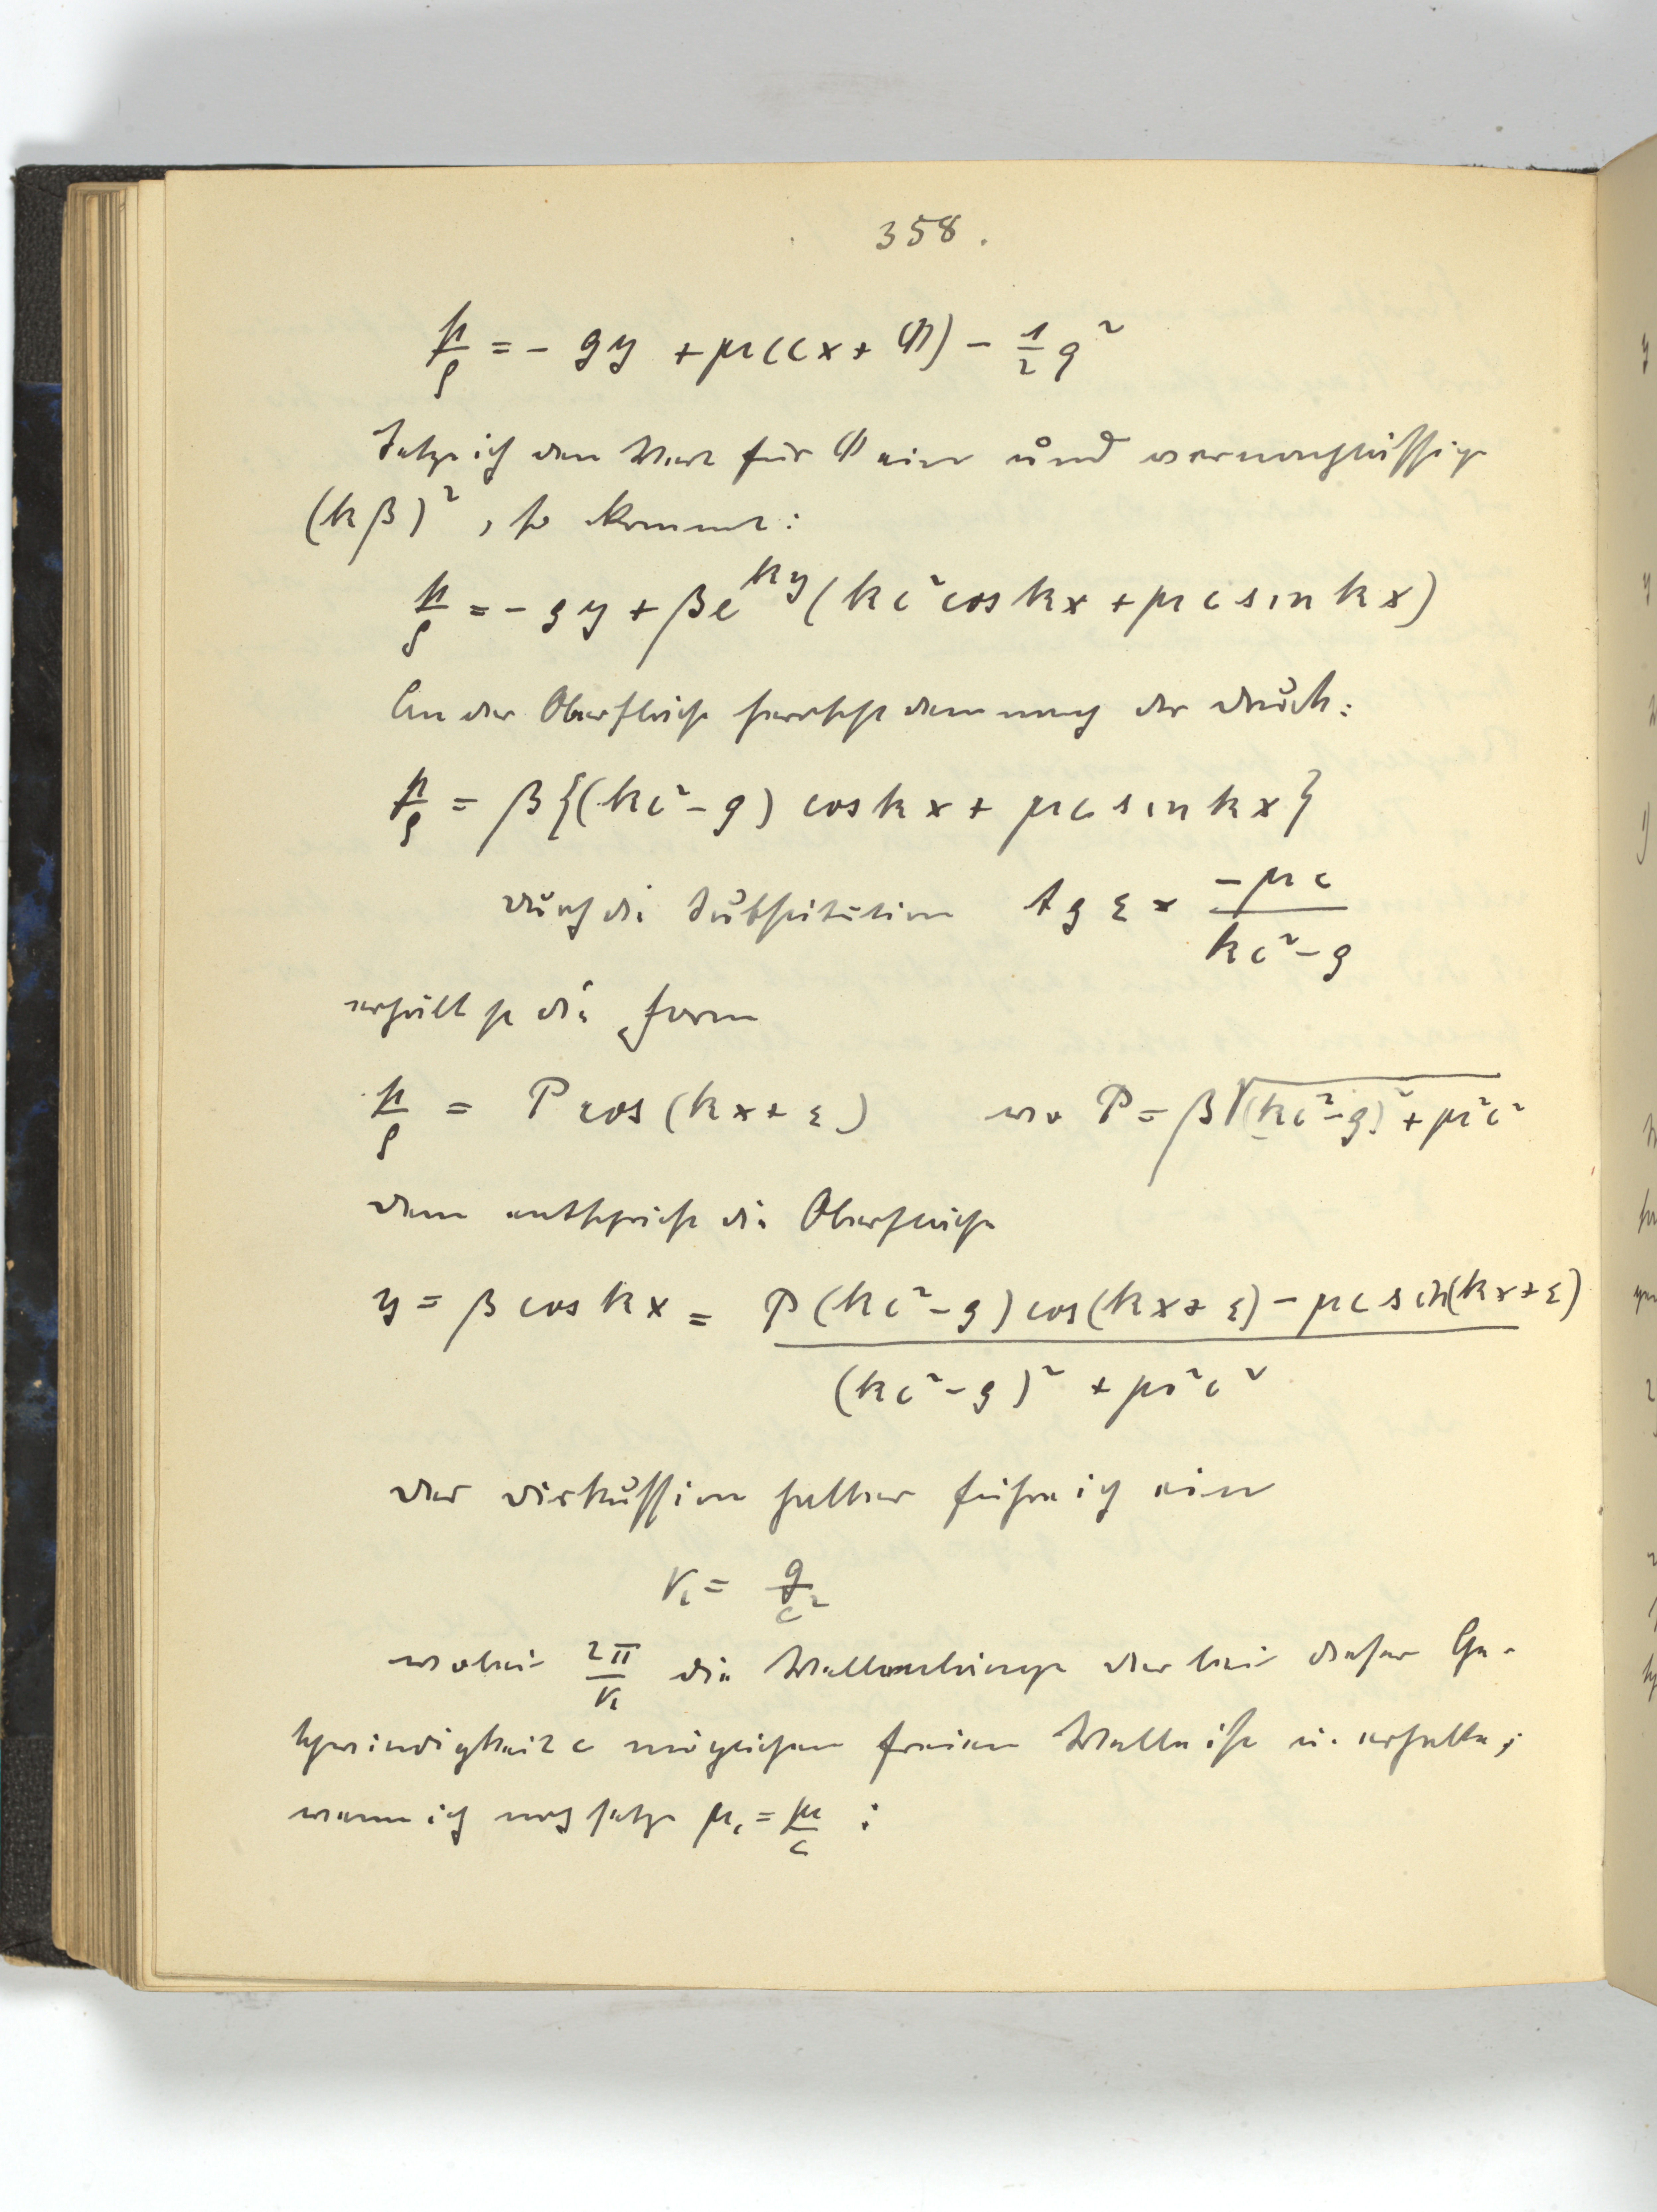 358.
p/ρ = - gy + μ(cx + Φ) - 1/2 q²
Setze ich den Wert für Φ ein und vernachlässige
(kβ)², so kommt:
p/ρ = - gy + βe^{ky}(kc² cos kx + μc sin kx)
An der Oberfläche herrscht demnach der Druck:
p/ρ = β{(kc² - g) cos kx + μc sin kx}
Durch die Substitution tg ε = -μc/(kc² - g)
erhält p die Form
p/ρ = P cos(kx + ε) wo P = β√((kc² - g)² + μ²c²)
Dem entspricht die Oberfläche
y = β cos kx = P(kc² - g) cos(kx + ε) - μc sin(kx + ε) / ((kc² - g)² + μ²c²)
Der Diskussion halber führe ich ein
κ = g/c²
wobei 2π/κ die Wellenlänge der bei dieser Ge-
schwindigkeit c möglichen freien Welle ist u. erhalte,
wenn ich noch setze μ₁ = μ/c :